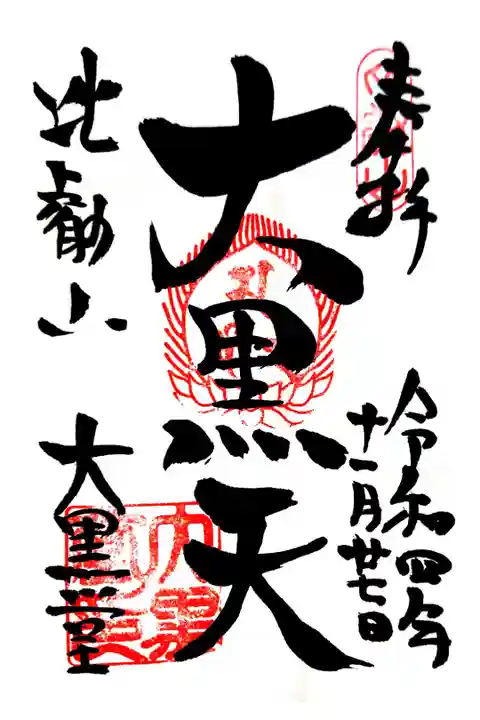 奉拝
令和四年
十一月廿七日
大黒天
比叡山
大黒堂